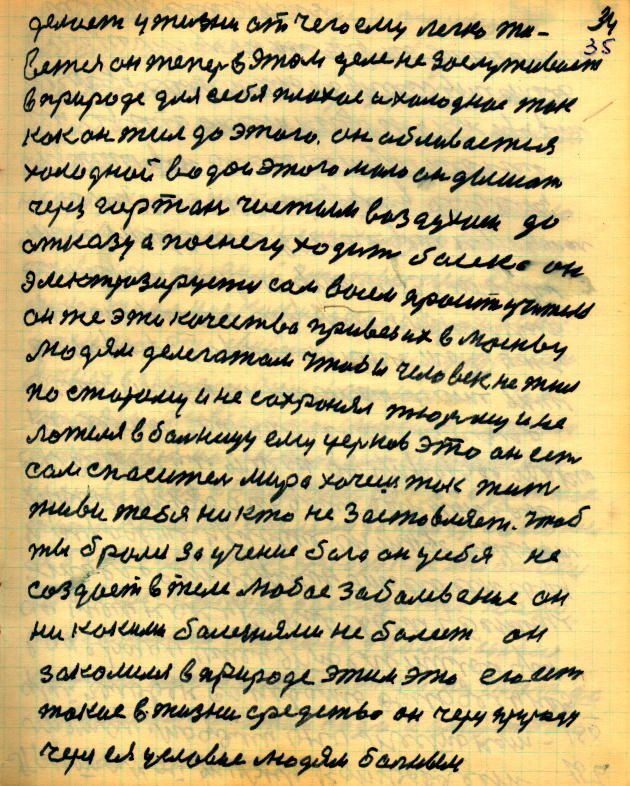 34
35
делает у жизни от чего ему легко жи-
вется он тепер в этом деле не заслуживает
в природе для себя плохое и холодное так
как он жил до этого. он обливается
холодной водой этого мало он дышит
через гортан чистым воздухом до
отказу а по снегу ходит босиком он
электрозируется сам всем просит учител
он же эти качества привез их в Москву
людям делегатам чтобы человек не жил
по старому и не сохранял тюрьму и не
ложился в болницу ему это он ест
сам спасител мира хочеш так жит
живи тебя никто не заставляет. чтоб
ты брали за учение было он у себя не
создает в теле любое заболевание он
ни какими болезнями не болеет он
закалился в природе этим это его ест
такое в жизни средство он через природу
через ея условие людям болным